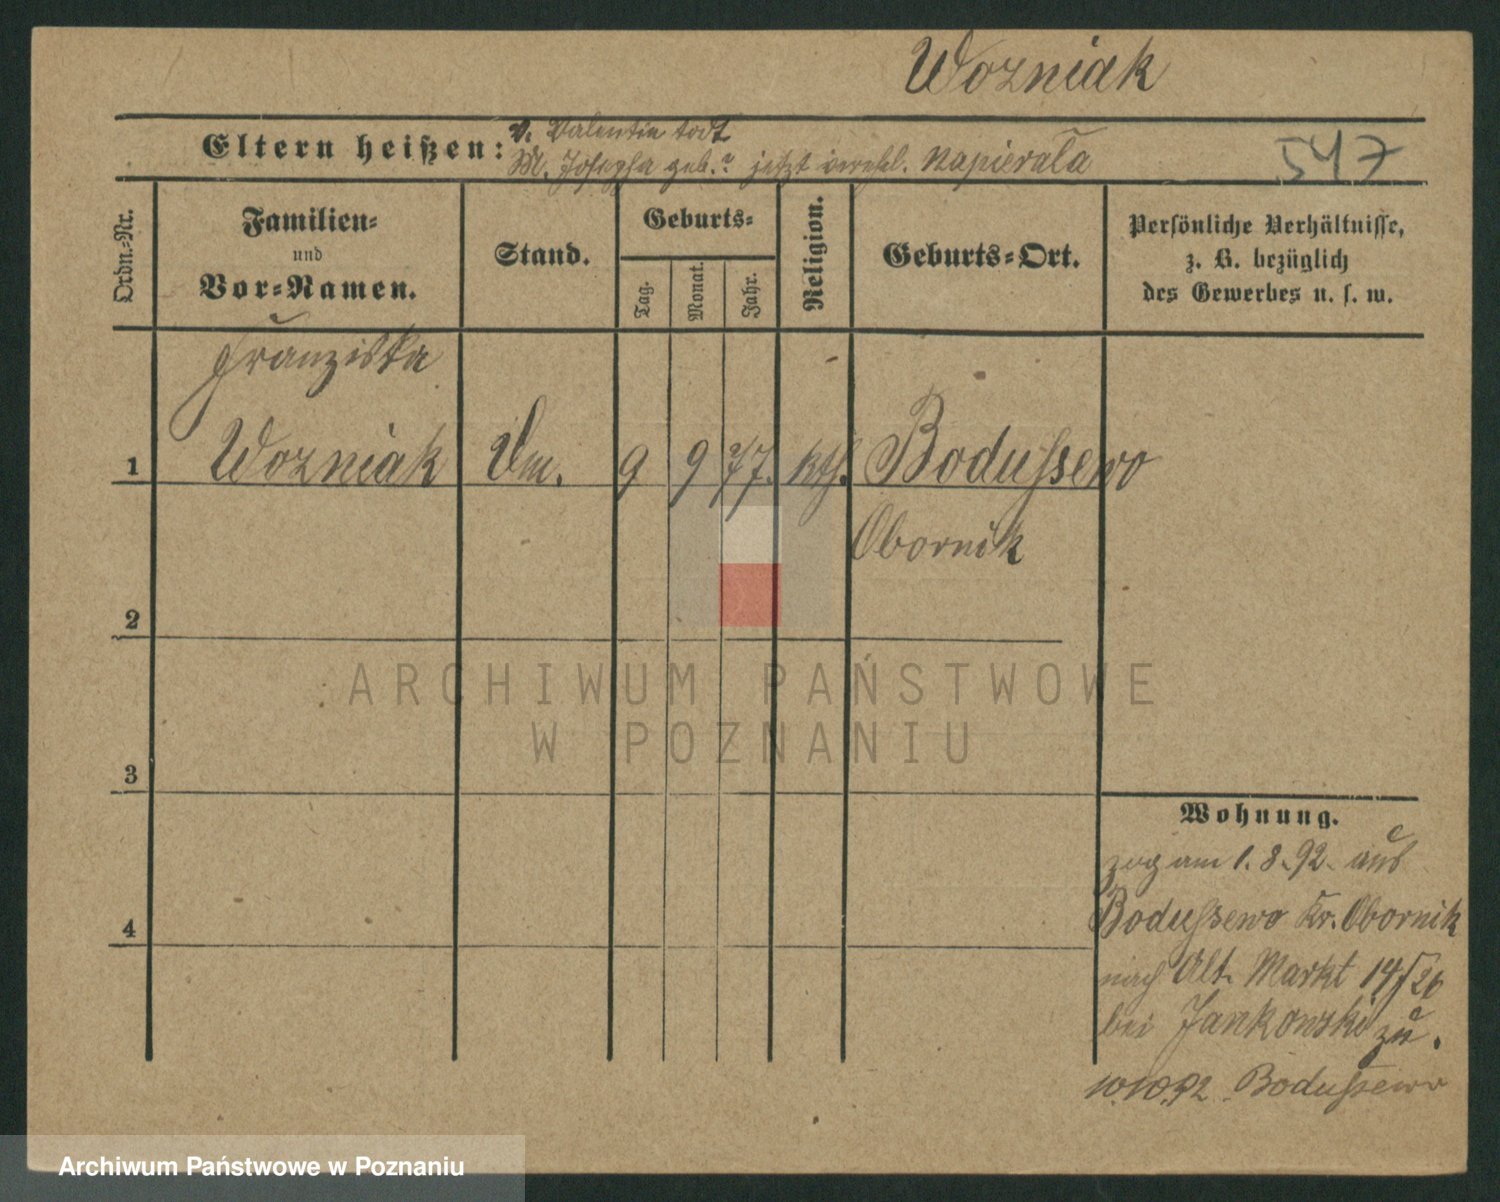 Wozniak
Eltern heißen:
V. Valentin todt
M. Josepha geb. ? jetzt verehel. Napierala
547
Ordn.-Nr.
Familien-
und
Vor-Namen.
Stand.
Geburts-
Tag.
Monat.
Jahr.
Religion.
Geburts-Ort.
Persönliche Verhältnisse,
z. B. bezüglich
des Gewerbes u. s. w.
Franziska
1 Wozniak 9 9 77. kth. Bodussewo
Obornik
2
3
4
Wohnung.
zog am 1. 8. 92. aus
Bodussewo Kr. Obornik
nach Alt. Markt 14/
bei Jankowski zu.
10.10.92. Bodussewo
ARCHIWUM PAŃSTWOWE
W POZNANIU
Archiwum Państwowe w Poznaniu